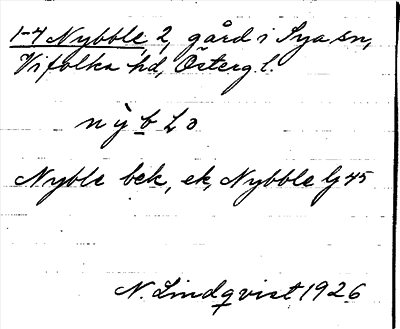 1-4 Nybble, 2, gård i Sya sn,
Vifolka hd, Österg. l.
nỳbLɔ
Nyble bek, ek, Nybble Gj 45
N. Lindqvist 1926